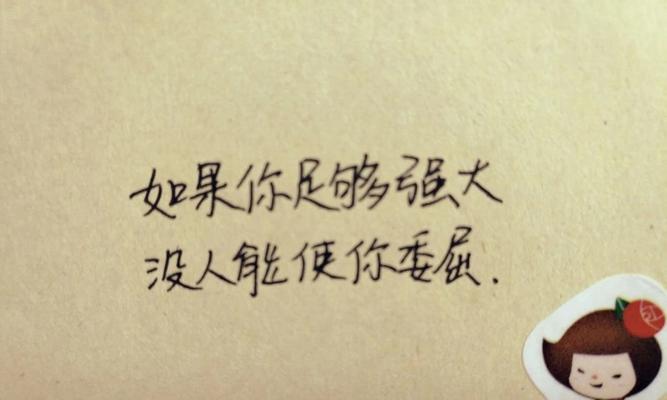 如果你足够强大
没人能使你委屈.